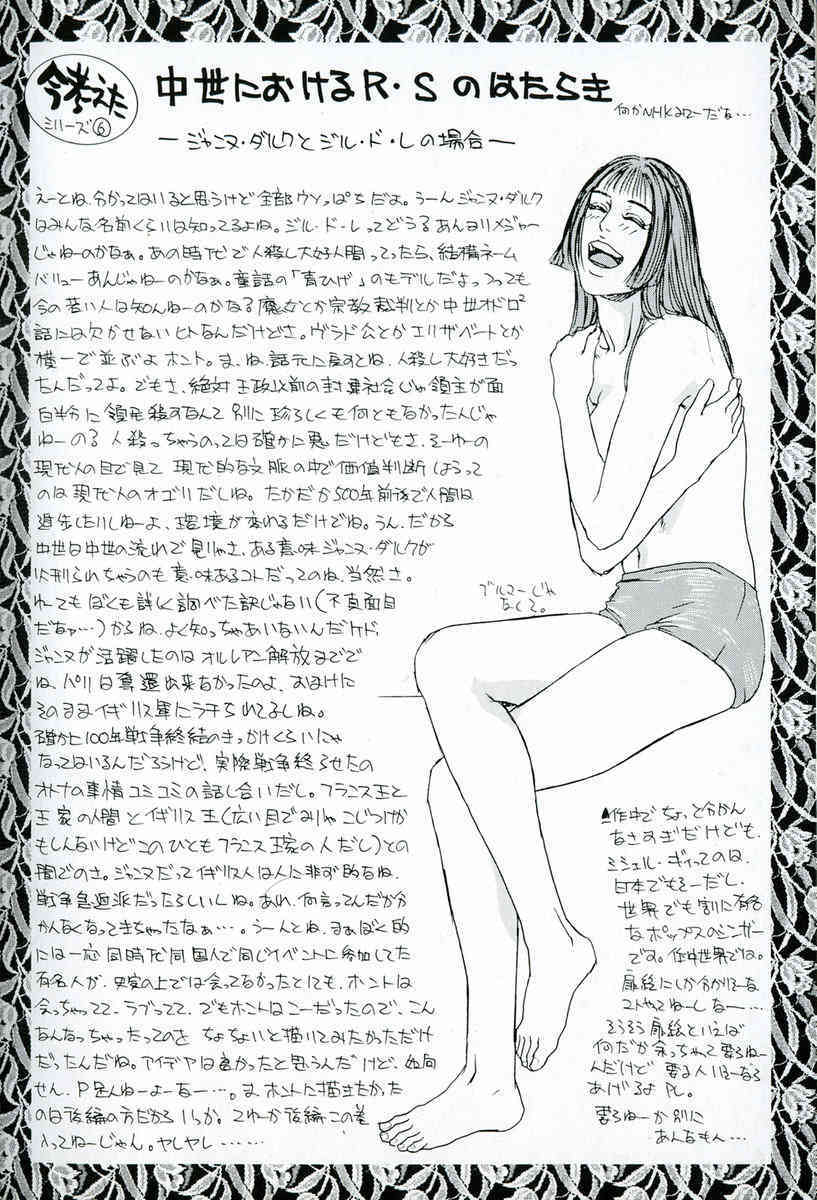 今考えた
シリーズ⑥
中世におけるR・Sのはたらき
何かNHKみてーだな…
―ジャンヌ・ダルクとジル・ド・レの場合―
えーとね、分かってはいると思うけど全部ウソっぱちだよ。うーんジャンヌ・ダルク
はみんな名前くらいは知ってるよね。ジル・ド・レってどうなんあんまりメジャー
じゃねーのかなぁ。あの時代で人殺し大好人間ってったら、結構ネーム
バリューあんじゃねーのかなぁ。童話の「青ひげ」のモデルだよっつっても
今の若い人は知んねーのかなぁ魔女とか宗教裁判とか中世オドロ²
話には欠かせないヒトなんだけどさ。ヴラド公とかエリザベートとか
横一で並ぶよホント。ま、ね、話元に戻すとね、人殺し大好きだっ
たんだってよ。でもさ、絶対王政以前の封建社会じゃ領主が面
白半分に領民殺すなんて別に珍らしくも何ともなかったんじゃ
ねーの?人殺っちゃうのっては確かに悪だけどもさ、そーゆーの
現代人の目で見て現代的な文脈の中で価値判断しようって
のは現代人のオゴリだしね。たかだか500年前後で人間は
進歩したりしねーよ、環境が変わるだけでね。うん、だから
中世は中世の流れで見りゃさ、ある意味ジャンヌ・ダルクが
火刑られちゃうのも意味あるコトだってのね、当然さ。
わーてもぼくも詳しく調べた訳じゃない(不真面目
だなァ…)からね、よく知っちゃあいないんだケド、
ジャンヌが活躍したのはオルレアン解放までで
ね、パリは奪還出来なかったのよ、おまけに
そのままイギリス軍にラチられてるしね。
確かに100年戦争終結のきっかけくらいにゃ
なってはいるんだろうけど、実際戦争終らせたの
オトナの事情コミコミの話し合いだし。フランス王と
王家の人間とイギリス王(広い目でみりゃこじつけか
もしんないけどこのひともフランス王家の人だし)との
間でのさ。ジャンヌだってイギリス人は人に非ず的なね、
戦争急進派だったらしいしね。あれ、何言ってんだか分
かんなくなってきちゃったなぁ…。うーんとね、まぁぼく的
には一応同時代同国人で同じイベントに参加してた
有名人が、史実の上では会ってなかったとしても、ホントは
会っちゃってて、ラブってて、でもホントはこーだったので、こん
なんなっちゃったってのを ちょちょいと描いてみたかっただけ
だったんだね。アイデアは良かったと思うんだけど、如何
せん、P足んねーよーなー…。ま、ホントに描きたかった
のは後編の方だからいっか。
入ってねーじゃん。ヤレヤレ……
ブルマーじゃ
なくて。
▲作中でちょっと分かん
なさすぎだけども、
ミシェル・ギィってのは、
日本でもそーだし、
世界でも割に有名
なポップスのシンガー
です。作中世界では。
扉絵にしか分かりそーな
コトやてねーしなー…
そうそう扉絵といえば
何だか余っちゃて要らねー
んだけど 要る人いるなら
あげるよPL。
要らねーか別に
あんなもん…